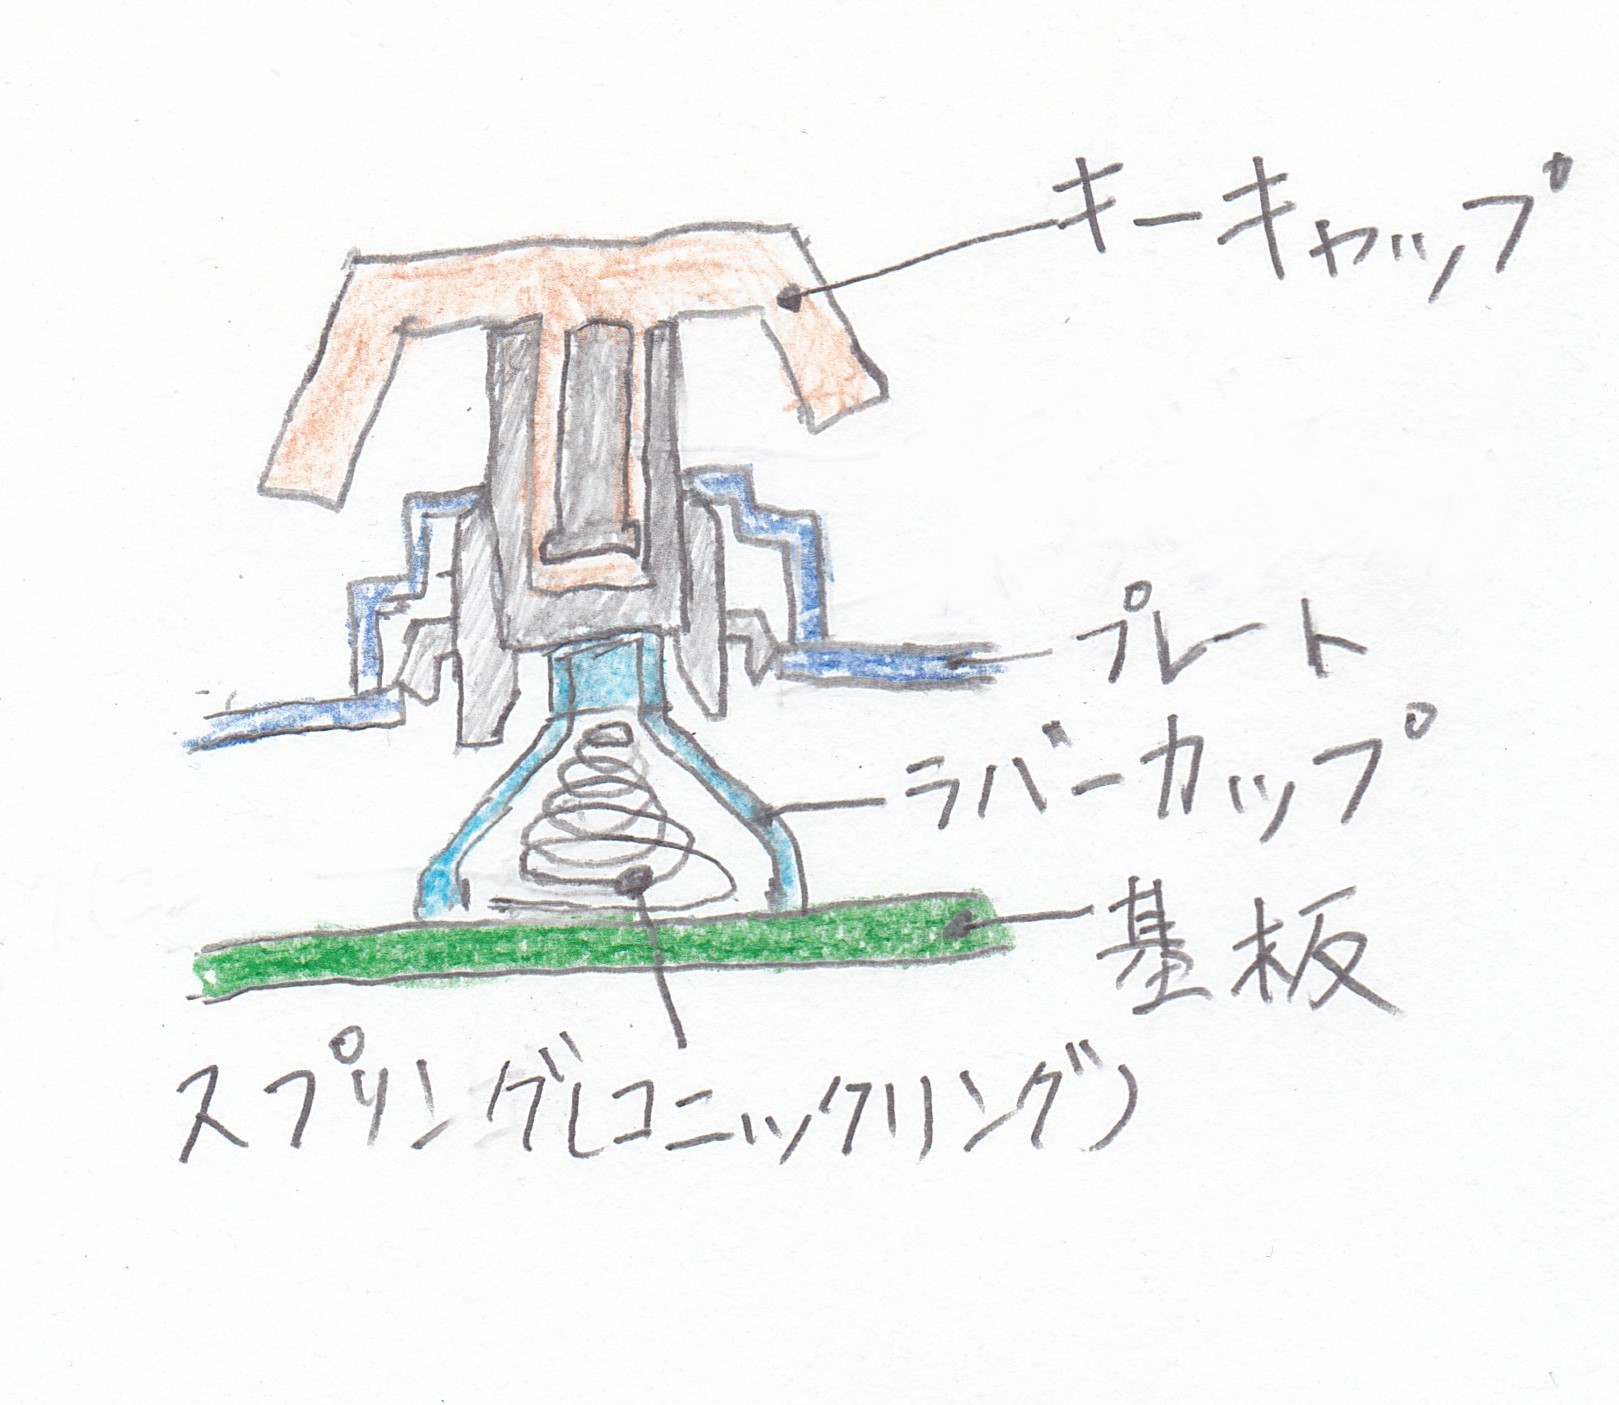 キーキャップ
プレート
ラバーカップ
基板
スプリング(コニックリング)